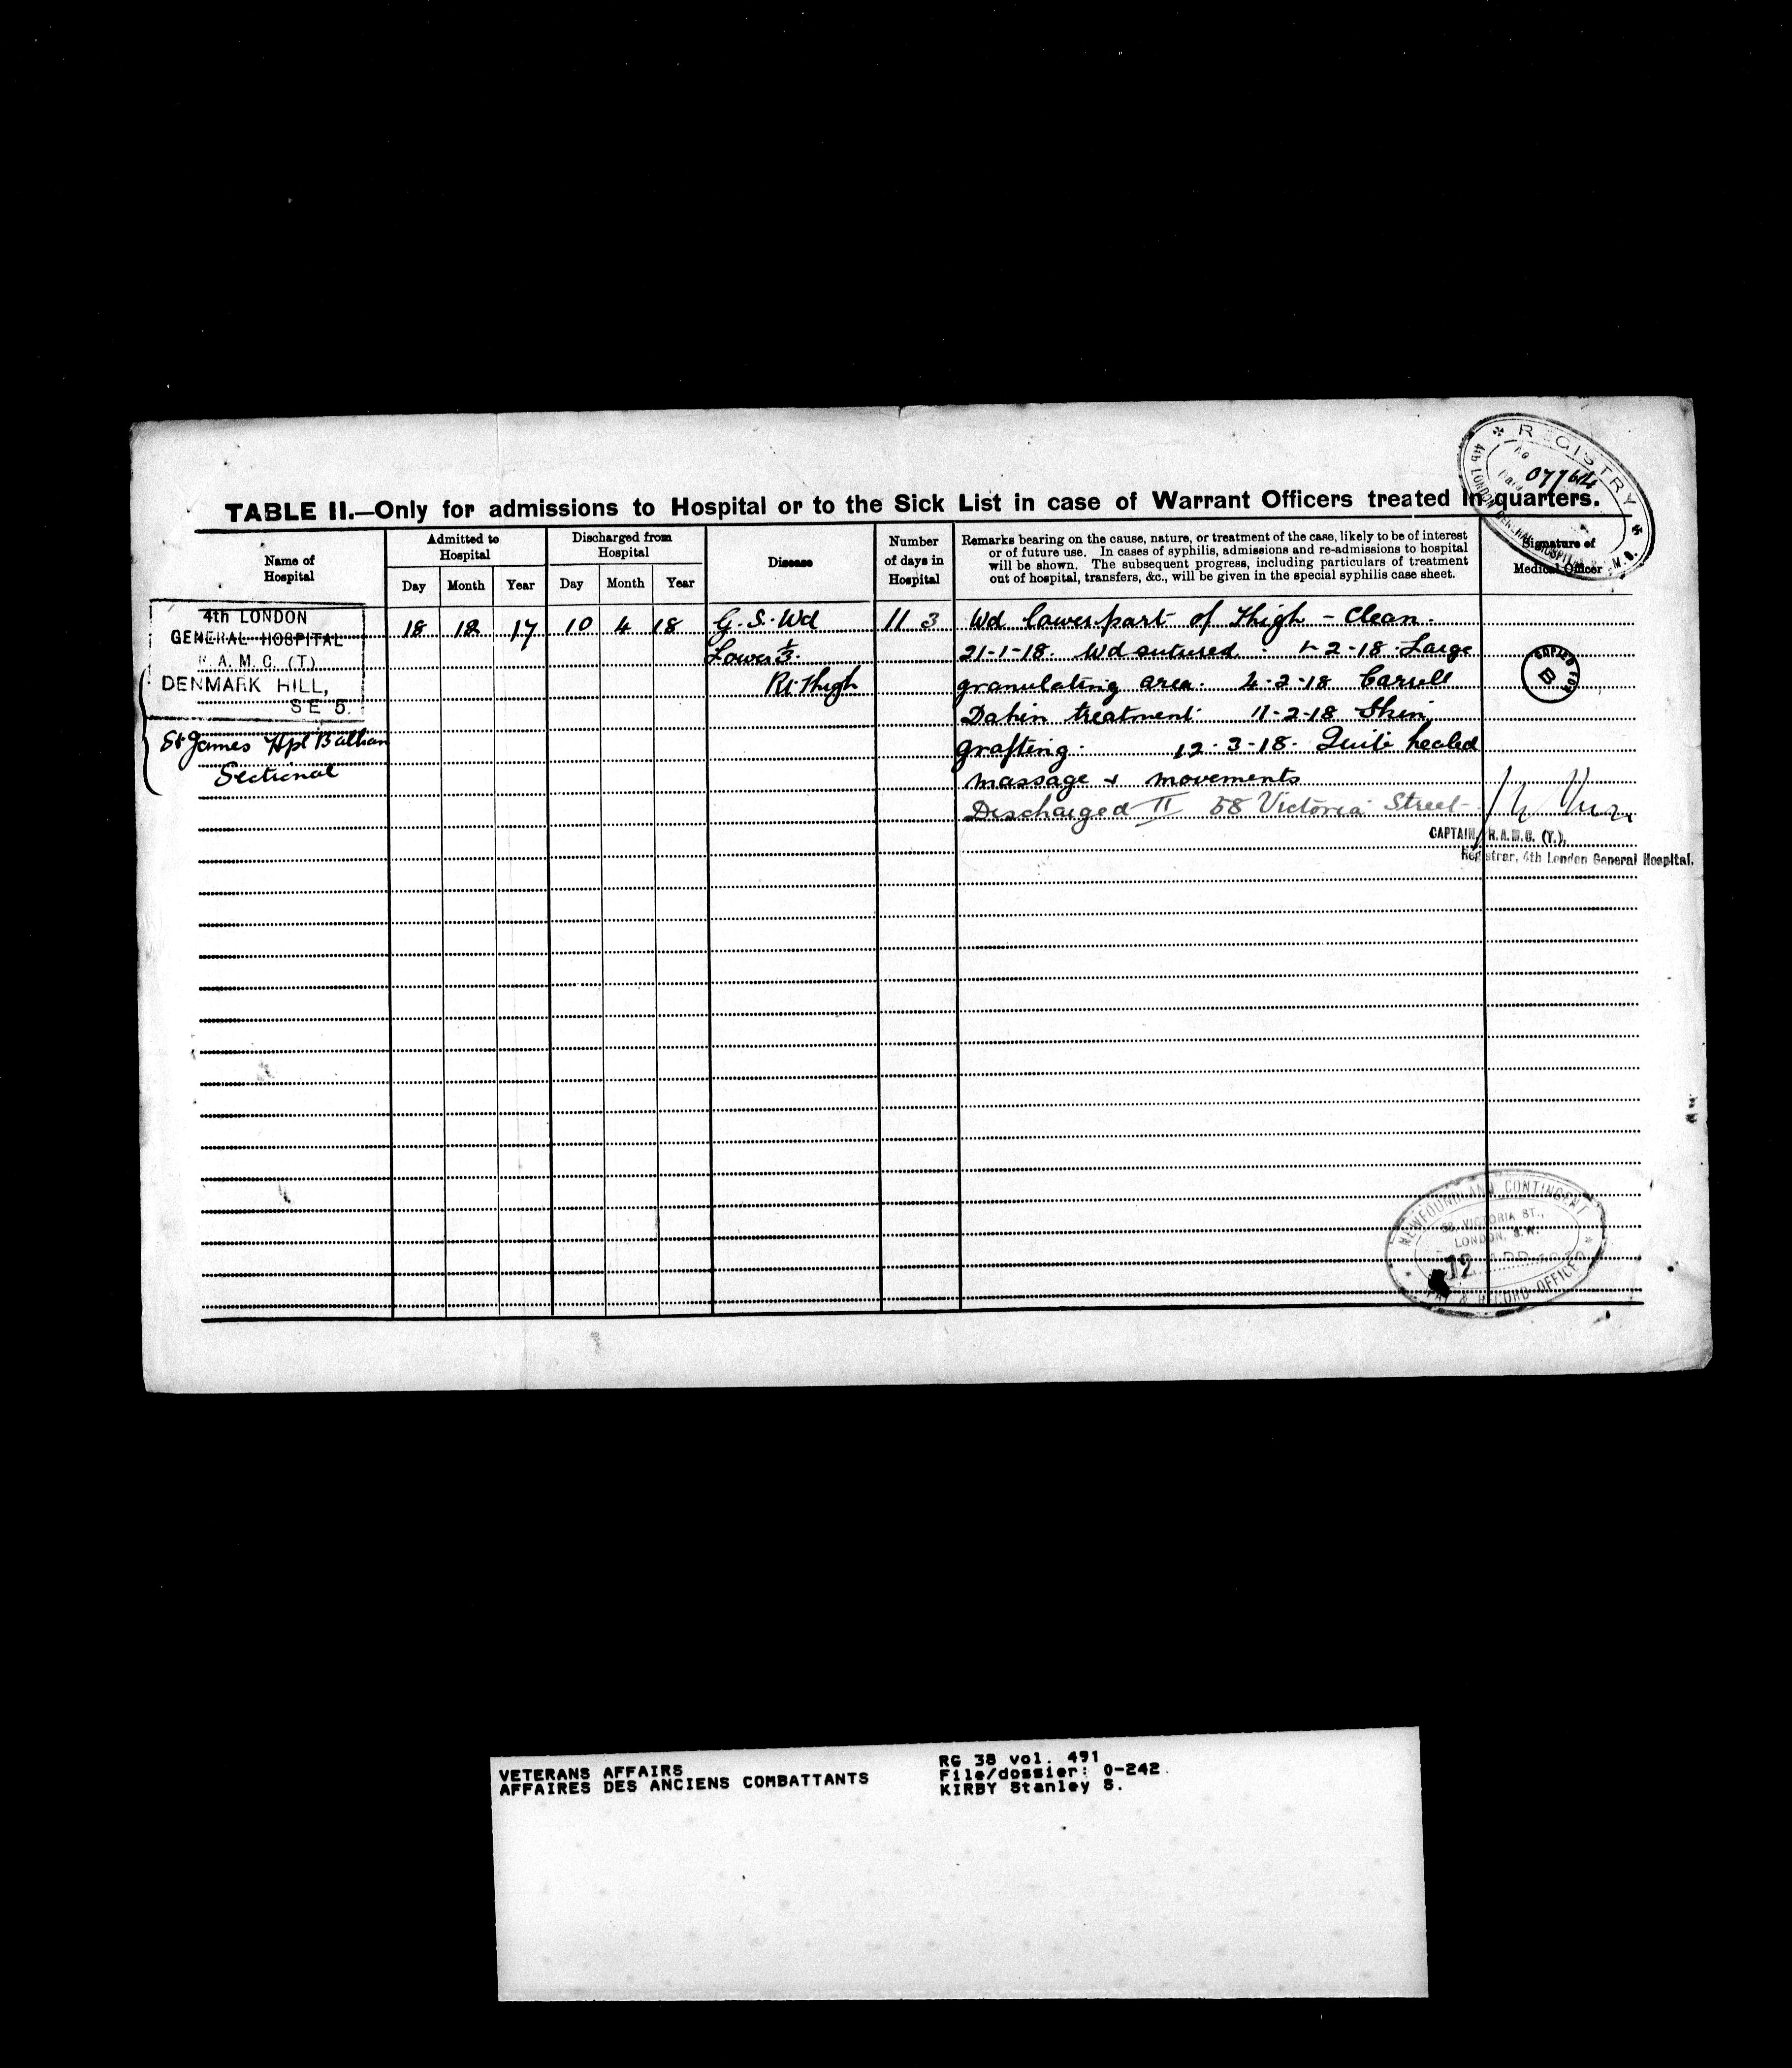 REGISTRY
07764
4th LONDON GENERAL HOSPITAL R.A.M.C.
TABLE II.—Only for admissions to Hospital or to the Sick List in case of Warrant Officers treated in quarters.
Name of Hospital
Admitted to Hospital
Day Month Year
Discharged from Hospital
Day Month Year
Disease
Number of days in Hospital
Remarks bearing on the cause, nature, or treatment of the case, likely to be of interest
or of future use. In cases of syphilis, admissions and re-admissions to hospital
will be shown. The subsequent progress, including particulars of treatment
out of hospital, transfers, &c., will be given in the special syphilis case sheet.
Signature of Medical Officer
4th LONDON
GENERAL HOSPITAL
R. A. M. C. (T)
DENMARK HILL,
S E 5.
St James Hpl Balham
Sectional
18 12 17 10 4 18
G. S. Wd
Lower 1/3.
Rt. Thigh
113
Wd lower part of Thigh - Clean.
21-1-18. Wd sutured. 1-2-18 Large
granulating area. 4-2-18 Carrell
Dakin treatment 11-2-18 Skin
grafting. 12-3-18. Quite healed
massage & movements
Discharged II 58 Victoria Street
COPIED FOR
B
CAPTAIN, R.A.M.C. (T.),
Registrar, 4th London General Hospital.
NEWFOUNDLAND CONTINGENT
58, VICTORIA ST.,
LONDON, S.W.
12 APR
PAY & RECORD OFFICE
VETERANS AFFAIRS
AFFAIRES DES ANCIENS COMBATTANTS
RG 38 vol. 491
File/dossier: 0-242
KIRBY Stanley S.